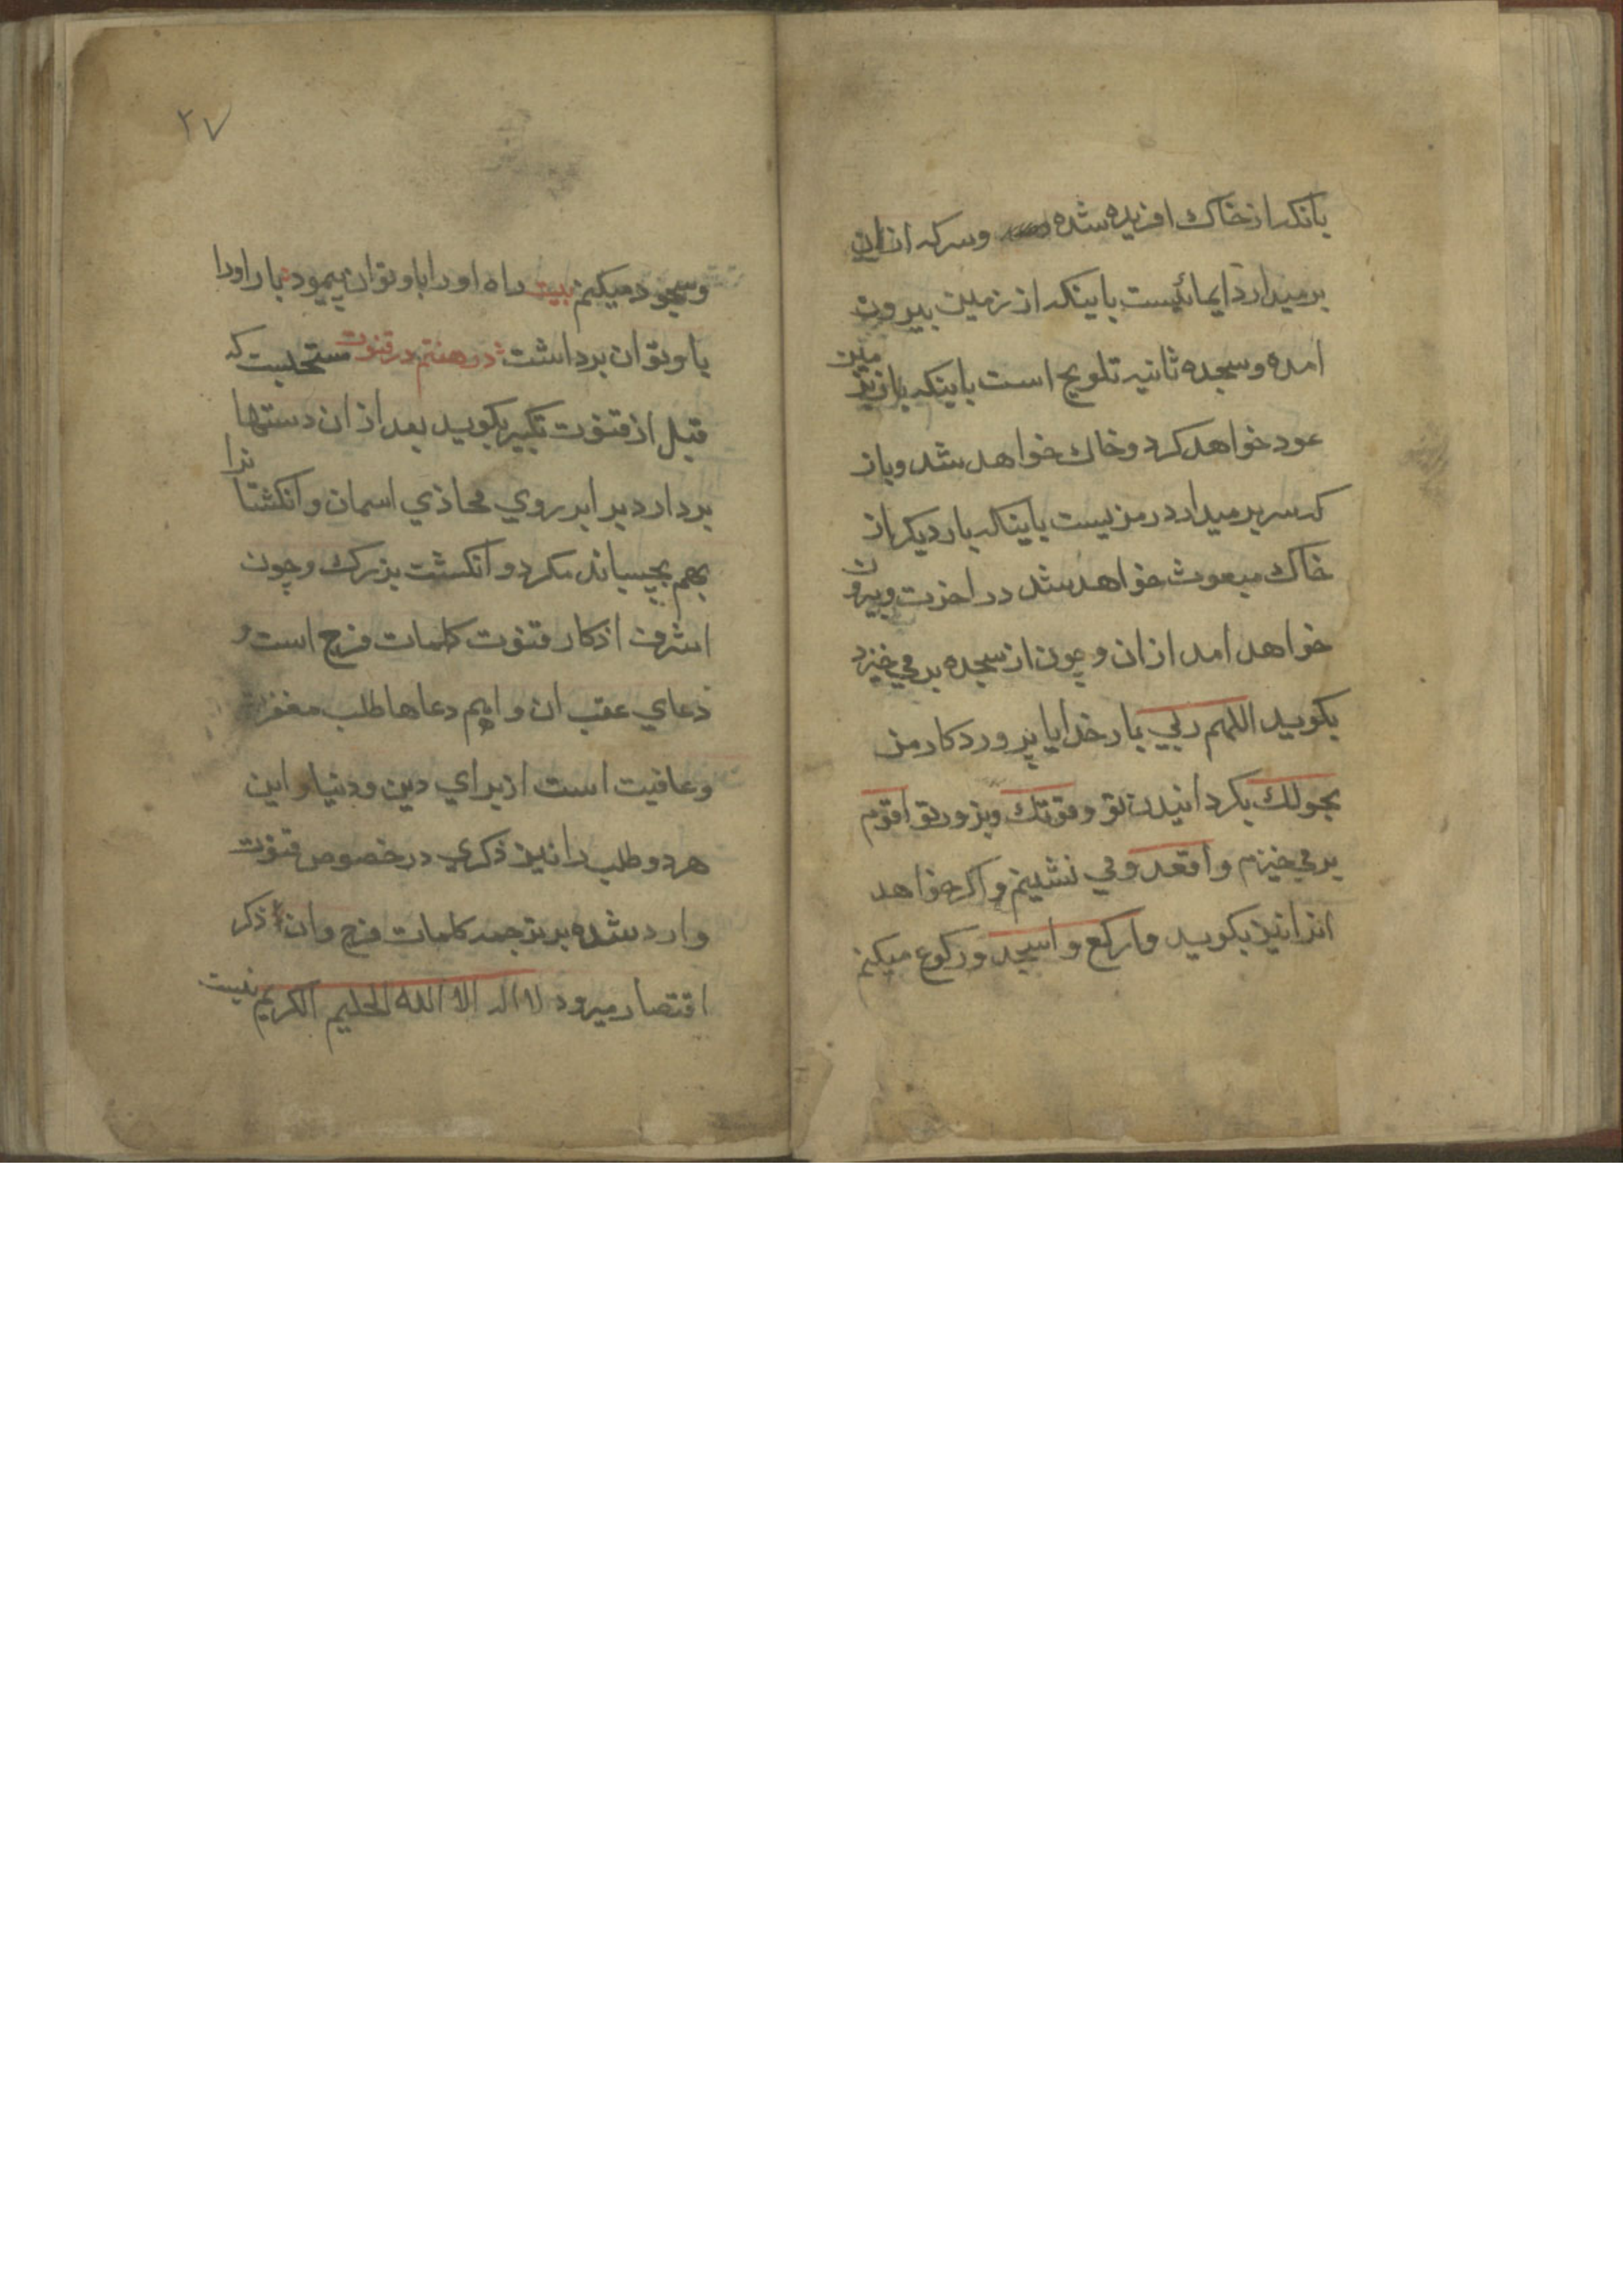 بانکه از خاک افریده شده وسر که از ان
برمیدارد ایمائیست باینکه از زمین بیرون
امده وسجده ثانیه تلویح است باینکه باز بزمین
عود خواهد کرد وخاک خواهد شد وباز
که سر برمیدارد رمزیست باینکه بار دیکر از
خاک مبعوث خواهد شد در اخرت وبیرون
خواهد امد از ان وچون از سجده برمی خیزد
بکوید اللهم ربي بار خدایا پروردکار من
بحولك بکردانیدن تو وقوتك وبزور تو اقوم
برمي خیزم واقعد ومي نشینم واکر خواهد
انرا نیز بکوید وارکع واسجد ورکوع میکنم
۲۷
وسجود میکنم بیت راه او را باو توان پیمود بار او را
باو توان برداشت در هفتم در قنوت مستحبست که
قبل از قنوت تکبیر بکوید بعد از ان دستها
بردارد برابر روي محاذي اسمان وانکشتانرا
بهم بچسباند مکر دو انکشت بزرک وچون
اشرف اذکار قنوت کلمات فرج است و
دعاي عقب ان واهم دعاها طلب مغفرت
وعافیت است از براي دین ودنیا واین
هر دو طلب را نیز ذکري در خصوص قنوت
وارد شده بر ترجمه کلمات فرج وان ذکر
اقتصار میرود لا اله الا الله الحلیم الکریم نیست